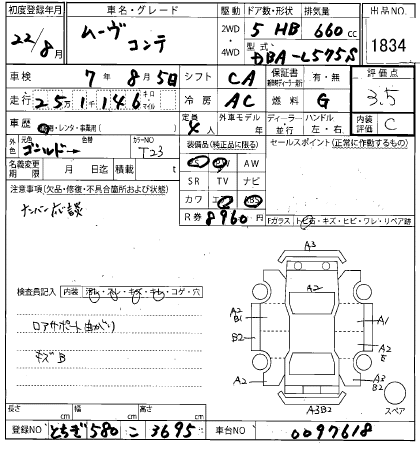 初度登録年月 車名・グレード 駆動 ドア数・形状 排気量 出品NO
22/8月 ムーヴ コンテ 2WD ・ 4WD 5 HB 660cc 1834
型式 DBA-L575S
車検 7年 8月 5日 シフト CA 保証書 有・無 評価点
走行 25万1千146 キロ マイル 冷房 AC 燃料 G 3.5
車歴 ・レンタ・事業用( ) 定員 4人 外車モデル 年 ディーラー・並行 ハンドル 左・右 内装 C
外色 元色 ゴールド→ 色替 カラーNO T23
装備品(純正品に限る) セールスポイント(正常に作動するもの)
PS PW AW
名義変更期限 月 日迄 積載量 t
SR TV ナビ
注意事項(欠品・修復・不具合箇所および状態)
カワ エア ABS
ナンバー応談
R券 8960円 Fガラス トビ石・キズ・ヒビ・ワレ・リペア跡
検査員記入 内装 汚レ・スレ・キズ・キレ・コゲ・穴
ロアサポート曲がり
キズB
A3
A2
A2
B1
A1
B2
A2
E
A2
A3
B2
A3B2
スペア
長さ cm 幅 cm 高さ cm
登録NO とちぎ 580 こ 3695 車台NO 0097618